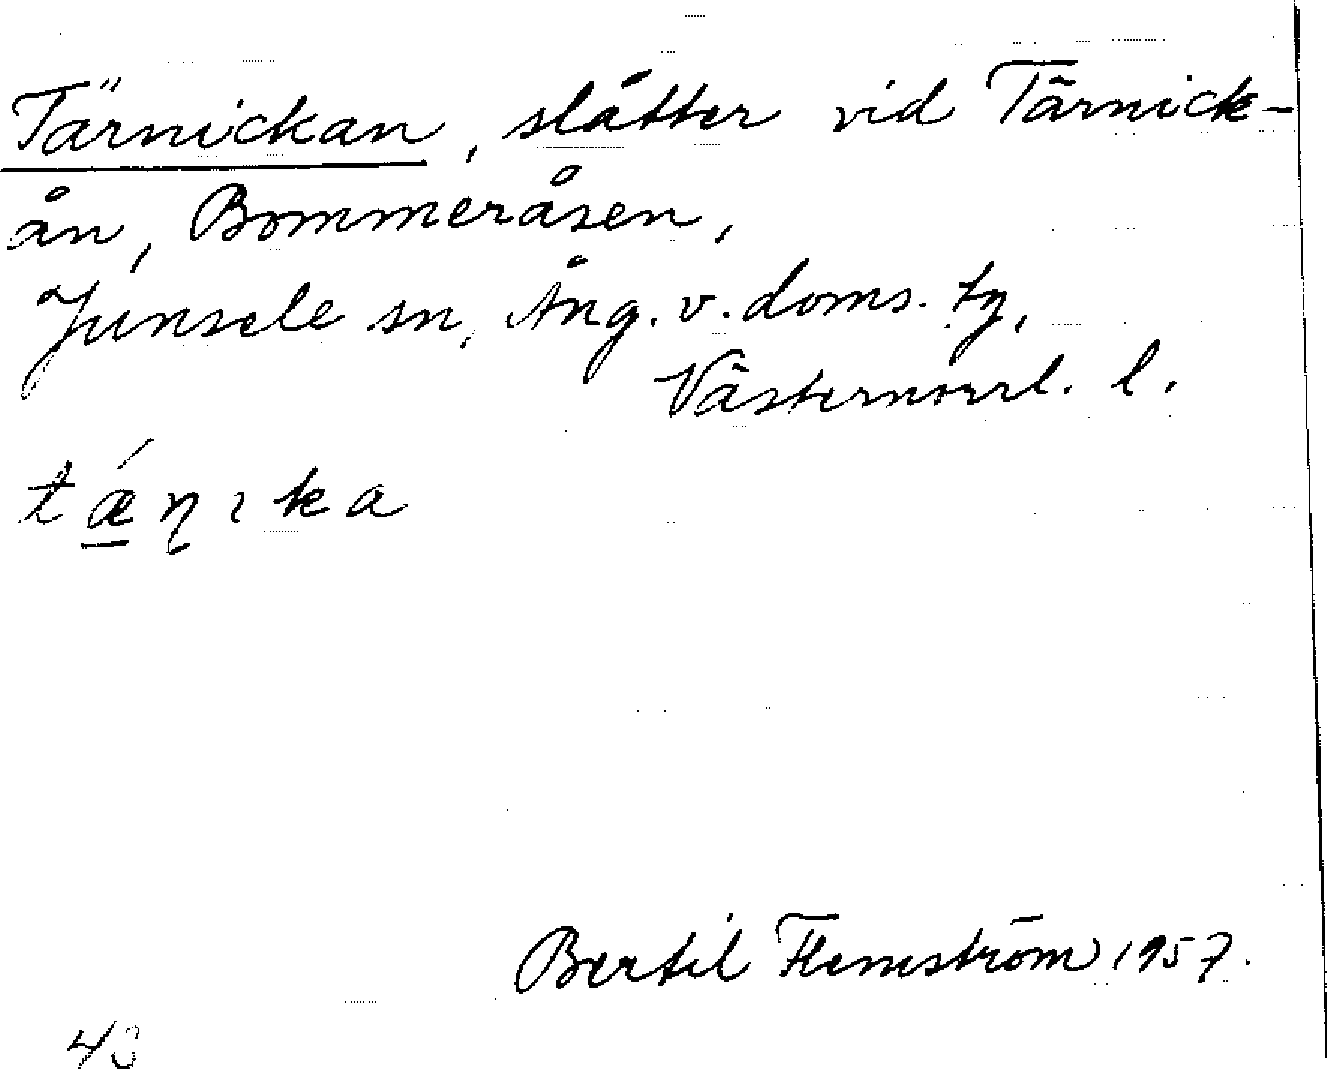 Tärnickan, slåtter vid Tärnick-
ån, Bommeråsen,
Junsele sn, Ång. v. doms. tg,
Västernorrl. l.
tǽṇıka
Bertil Flemström 1957.
43